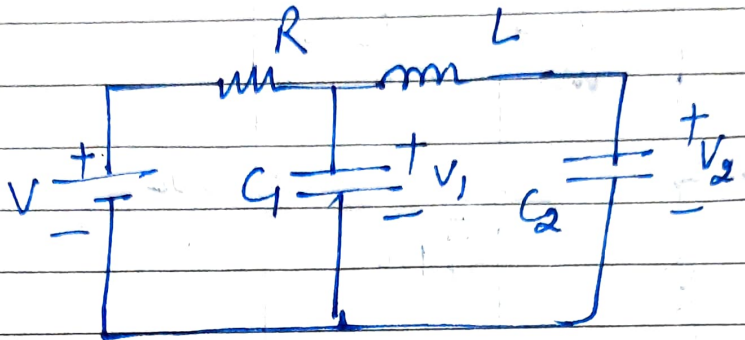 R L
+ + +
V C1 V1 C2 V2
- - -